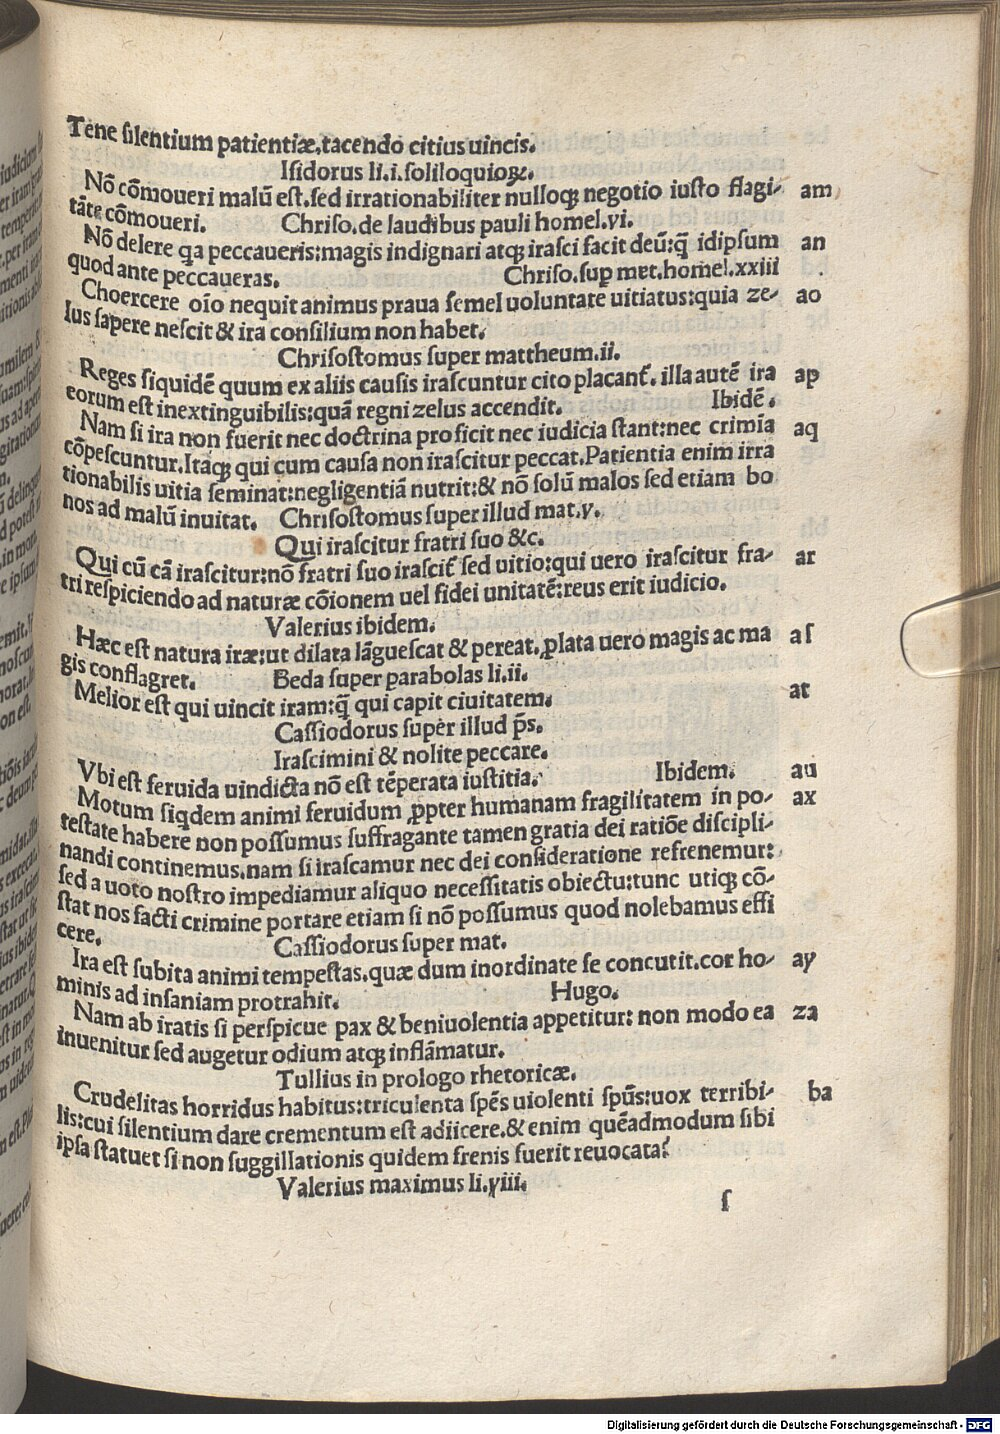 Tene silentium patientiæ.tacendo citius uincis.
Isidorus li.i.soliloquioꝝ.
Nō cōmoueri malū est.sed irrationabiliter nulloqꝫ negotio iusto flagi- am
tāte cōmoueri. Chriso.de laudibus pauli homel.vi.
Nō delere qa peccaueris:magis indignari atqꝫ irasci facit deū:q̄ idipsum an
quod ante peccaueras. Chriso.sup met.homel.xxiii
Choercere oīo nequit animus praua semel uoluntate uitiatus:quia ze- ao
lus sapere nescit & ira consilium non habet.
Chrisostomus super mattheum.ii.
Reges siquidē quum ex aliis causis irascuntur cito placant᷑. illa autē ira ap
eorum est inextinguibilis:quā regni zelus accendit. Ibidē.
Nam si ira non fuerit nec doctrina proficit nec iudicia stant:nec crimīa aq
cōpescuntur.Itaqꝫ qui cum causa non irascitur peccat.Patientia enim irra
tionabilis uitia seminat:negligentiā nutrit:& nō solū malos sed etiam bo
nos ad malū inuitat. Chrisostomus super illud mat.v.
Qui irascitur fratri suo &c.
Qui cū cā irascitur:nō fratri suo irascit᷑ sed uitio:qui uero irascitur fra- ar
tri respiciendo ad naturæ cōionem uel fidei unitatē:reus erit iudicio.
Valerius ibidem.
Hæc est natura iræ:ut dilata lāguescat & pereat.ꝓlata uero magis ac ma as
gis conflagret. Beda super parabolas li.ii.
Melior est qui uincit iram:q̄ qui capit ciuitatem. at
Cassiodorus super illud p̄s.
Irascimini & nolite peccare.
Vbi est feruida uindicta nō est tēperata iustitia. Ibidem. au
Motum siqdem animi feruidum ꝓpter humanam fragilitatem in po- ax
testate habere non possumus suffragante tamen gratia dei ratiōe discipli-
nandi continemus.nam si irascamur nec dei consideratione refrenemur:
sed a uoto nostro impediamur aliquo necessitatis obiectu:tunc utiqꝫ cō-
stat nos facti crimine portare etiam si nō possumus quod nolebamus effi
cere. Cassiodorus super mat.
Ira est subita animi tempestas.quæ dum inordinate se concutit.cor ho- ay
minis ad insaniam protrahit. Hugo.
Nam ab iratis si perspicue pax & beniuolentia appetitur: non modo ea za
inuenitur sed augetur odium atqꝫ inflāmatur.
Tullius in prologo rhetoricæ.
Crudelitas horridus habitus:triculenta spēs uiolenti spūs:uox terribi- ba
lis:cui silentium dare crementum est adiicere.& enim quēadmodum sibi
ipsa statuet si non suggillationis quidem frenis fuerit reuocata?
Valerius maximus li.viii.
s
Digitalisierung gefördert durch die Deutsche Forschungsgemeinschaft - DFG